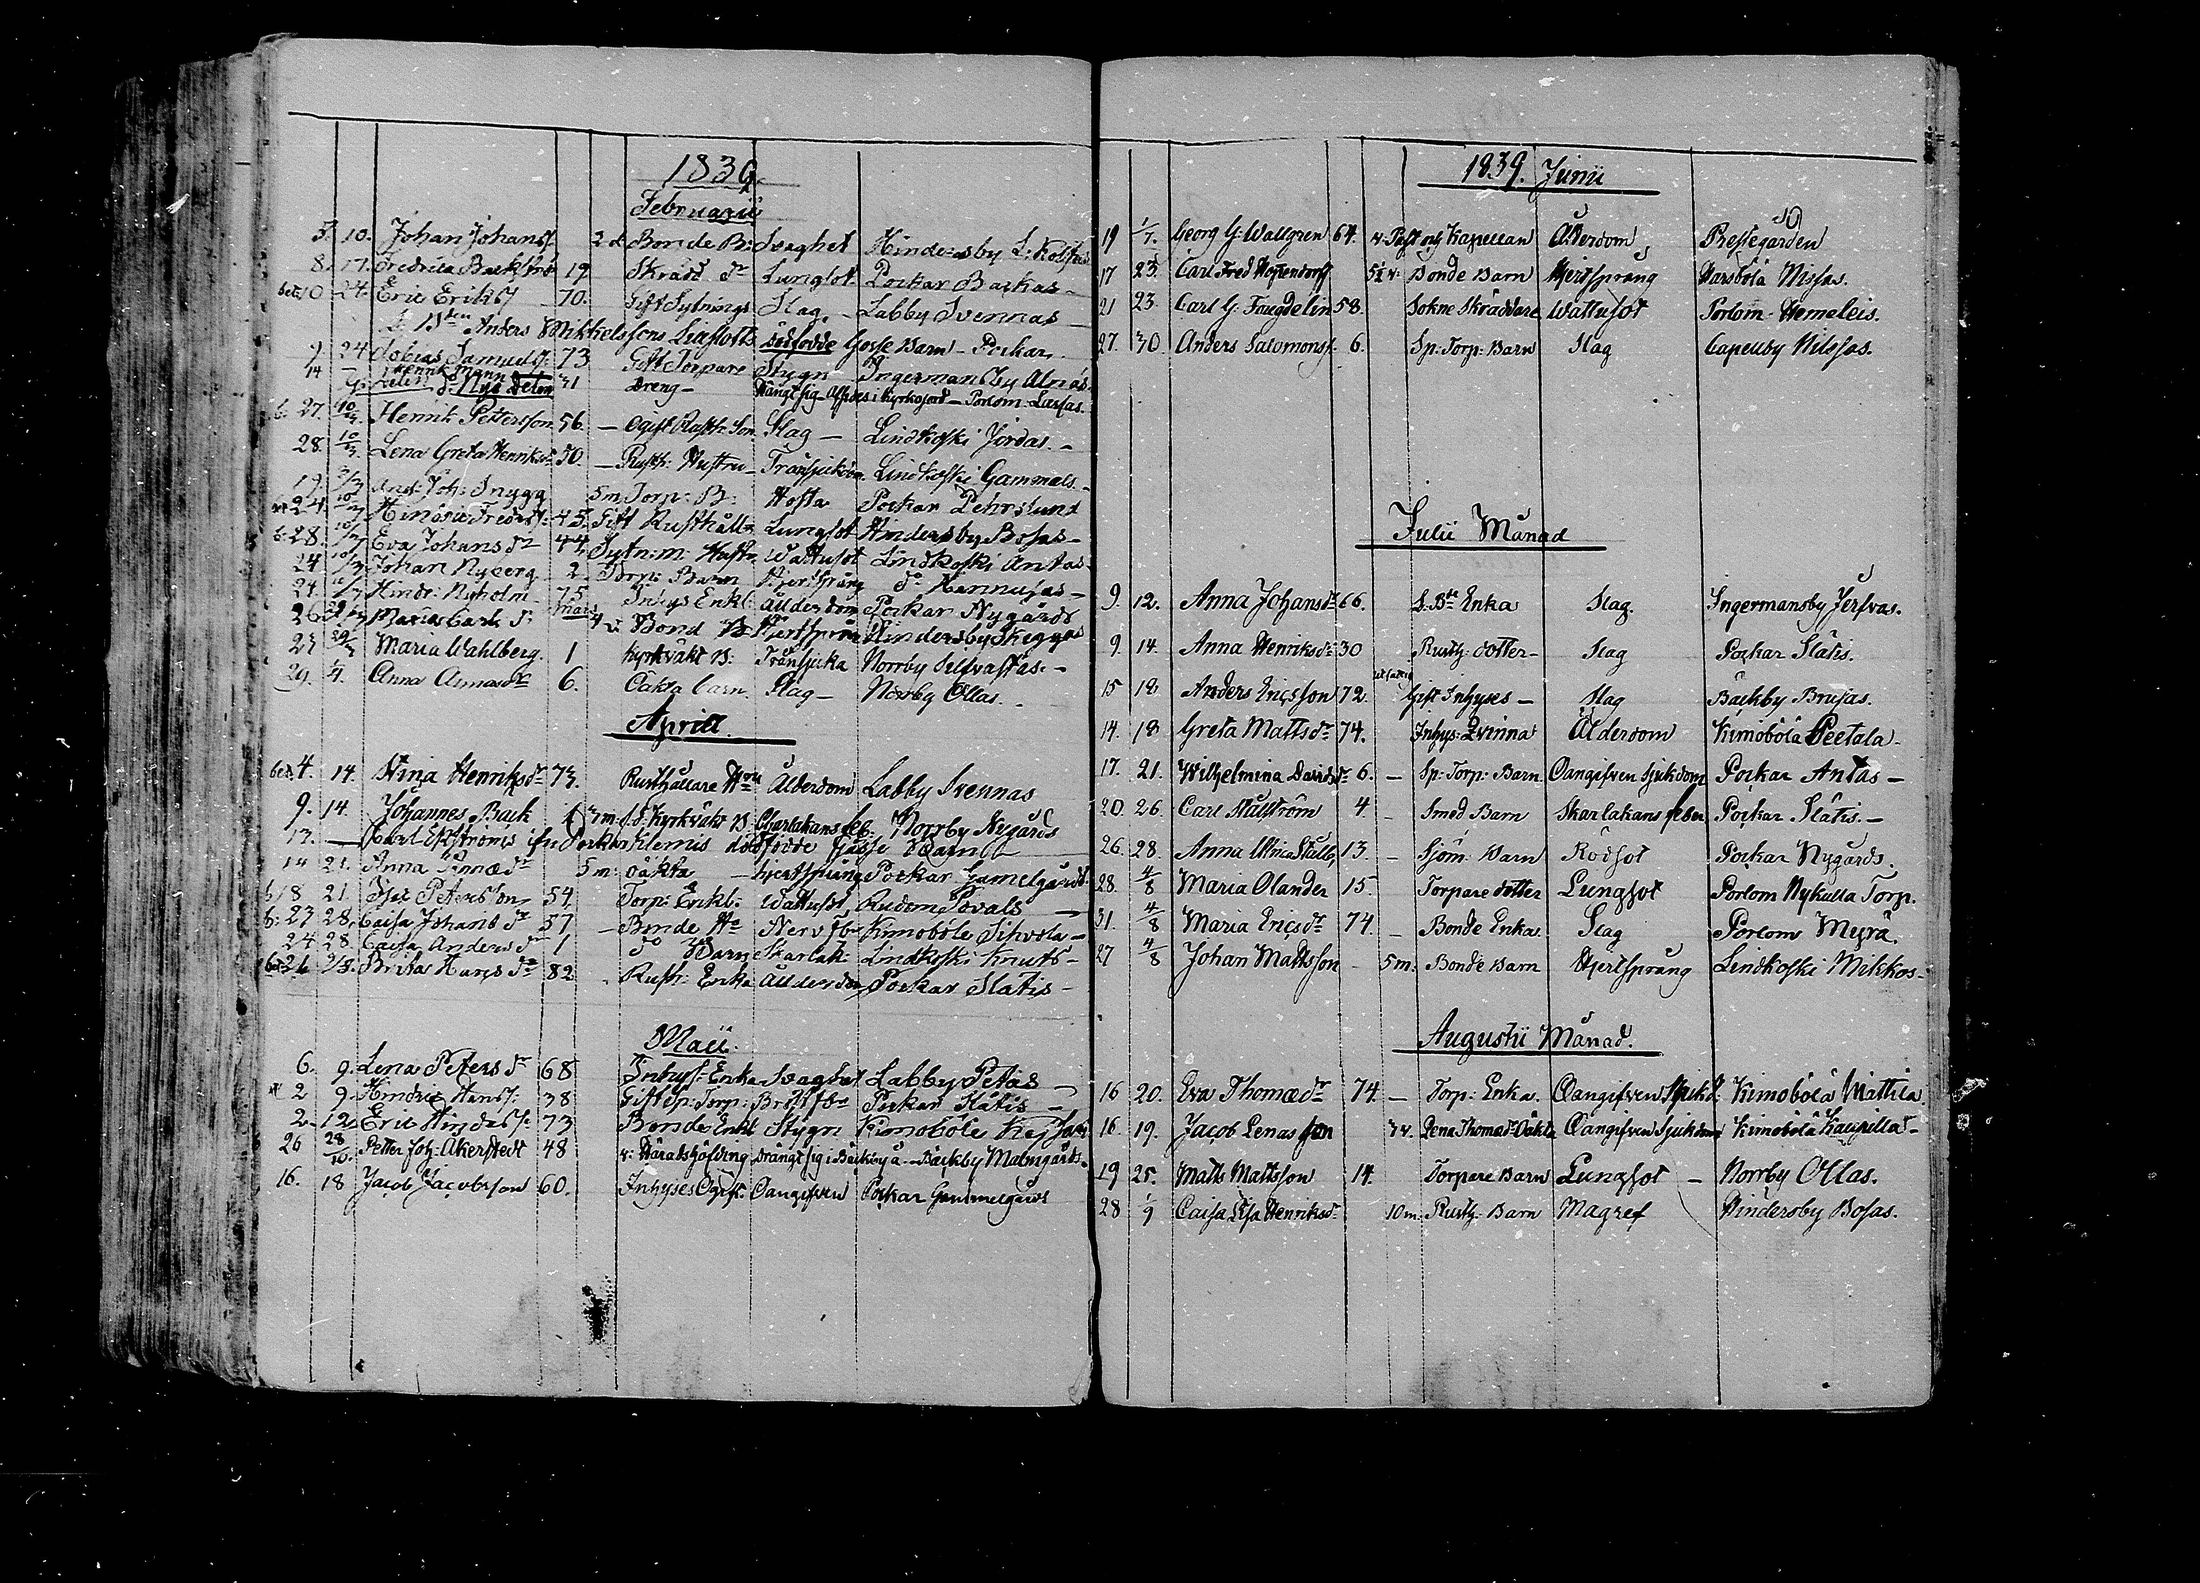 1839.
Februarii
5. 10. Johan Johans 2 d Bonde B: Svaghet Hindersby L: Kolf
8. 17. Fredrica Backström 19. Lungsot Porkar Backas
10 24. Eric Eriks 70. Gift Sytnings Slag. Labby Svennas
Anders Mikkelssons dödfödde Gosse Barn Porkar
9. 24 Tobias Samuels 73 Gift Torpare Stygn Ingermansby
14 31 Dreng Hängt sig i Kyrkojord Porlom Larsas.
b: 27. 10/3 Henrik Pettersson 56. Ogift Rusth: Son Slag Lindkoski Jordas.
28. 10/3 Lena Greta Henriksdr 50. Rusth: Hustru Lindkoski Gammals
19. Joh: Snygg 5 m Torp: B: Hosta Porkar Pehrslund
24. Hindric 45. Gift Rusthålla Lungsot Hindersby Bosas
b: 28. Eva Johansdr 44. Sytn: m: Hustr Wattusot Lindkoski Antas
24 Johan Nyberg 2. Torp: Barn Hjertsprång do Hannusas
24. Hindr: Nyholm 75. Inhys Enkl: Ålderdom Porkar Nygårds
26 Maria Carls dr Bond B Hjertsprång Hindersby Skeggas
27 30/3 Maria Wahlberg. 1 Kyrkvakt B: Tränsjuka Norrby
29. Anna 6. Oäkta barn Slag Norrby Ollas.
Aprill.
4. 14. Stina Henriksdr 73. Rusthållare Ålderdom Labby Svennas
9. 14 Johannes Back Kyrkväkt B Charlakans feb: Norrby Nygårds
13. Carl Ekströms Porkar Klemis dödfödde Gosse Barn
14 21. Anna 5 m: oäkta hjertsprång Porkar Gamelgårds
18 21. Peterson 54. Torp: Enkl. Wattusot Rudom
b: 23 28. Caisa Johansdr 37 Bonde Nerv fbr Kimoböle
24 28. Caisa Andersdr 1 do Barn Skarlak: Lindkoski Knuts
26 Brita Hansdr 82 Rusth: Enka Ålderdom Porkar Slatis
Maii.
6. 9. Lena Petersdr 68 Inhys: Enka Svaghet Labby Petas
2 9. Hindric Hans: 38 Gift Sp: Torp: Bröst fbr Porkar Slätis
2 12. Eric 73 Bonde Enkl Stygn Kimoböle
26 28/10. Petter Joh: Åkerstedt 48 v: Häradshöfding Drängt sig i Backby å Backby Malmgårds
16. 18 Jacob Jacobsson 60. Inhyses Ogift. Oangifven Porkar Gammelgårds
1839. Junii
19 1/7. Georg G: Wallgren 64. v: Past och Kapellan Ålderdom Prestegården
17 23 Carl Fred Hopendorff 5½ v: Bonde Barn Hjertsprång Harsböla Nissas.
21 23. Carl G: Taugdelin 58. Sokne Skräddare Wattusot Porlom Hemeleis.
27. 30. Anders Salomons 6. Sp: Torp: Barn Slag Capellby Nilssas.
Julii Månad
9. 12. Anna Johansdr 66. Enka Slag. Ingermansby Jerfvas.
9. 14. Anna Henriksdr 30 Rusth: dotter Slag Porkar Slätis.
15 18 Anders Ericsson 72. Gift Inhyses Slag Backby Brusas.
14. 18 Greta Mattsdr 74. Inhys: Qvinna Ålderdom Kimoböla Peetala
17. 21. Wilhelmina Davidsdr 6. Sp: Torp: Barn Oangifven Sjukdom Porkar Antas
20. 26. Carl Stålström 4. Smed Barn Skarlakans feber Porkar Slätis.
26. 28. Anna Ulrica Stålb 13. Sjöm: Barn Rodsot Porkar Nygårds.
28. 4/8 Maria Olander 15. Torpare dotter Lungsot Porlom Nykulla Torp.
31. 4/8 Maria Ericsdr 74. Bonde Enka Slag Porlom Myrä.
27 4/8 Johan Mattsson 5 m. Bonde Barn Hjertsprång Lindkoski Mikkos
Augustii Månad.
16 20. Eva Thomædr 74. Torp: Enka Oangifven Sjukd: Kimoböla Mattila
16. 19. Jacob Lenas son Lena Thomædr Oäkta Oangifven Sjukdom Kimoböla Kaupilla
19 25. Matts Mattsson 14. Torpare Barn Lungsot Norrby Ollas.
28 1/9 Caisa Lisa Henriksdr 10 m: Rusth: Barn Magref Hindersby Bosas.